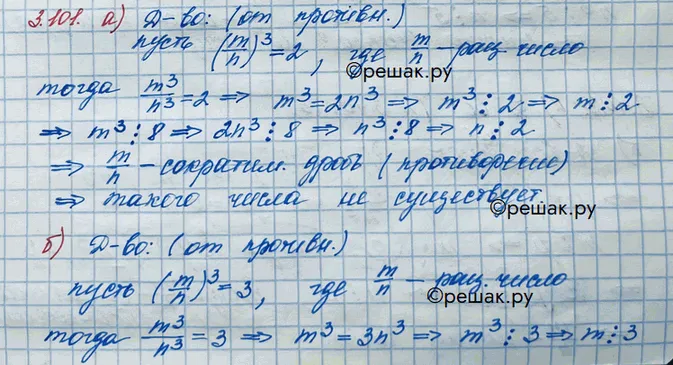 3.101. а) Д-во: (от противн.)
пусть (m/n)³ = 2, где m/n - рац. число
©решак.ру
тогда m³/n³ = 2 ⇒ m³ = 2n³ ⇒ m³ ⋮ 2 ⇒ m ⋮ 2
⇒ m³ ⋮ 8 ⇒ 2n³ ⋮ 8 ⇒ n³ ⋮ 8 ⇒ n ⋮ 2
⇒ m/n - сократим. дробь (противоречие)
⇒ такого числа не существует
©решак.ру
б) Д-во: (от противн.)
пусть (m/n)³ = 3, где m/n - рац. число
©решак.ру
тогда m³/n³ = 3 ⇒ m³ = 3n³ ⇒ m³ ⋮ 3 ⇒ m ⋮ 3